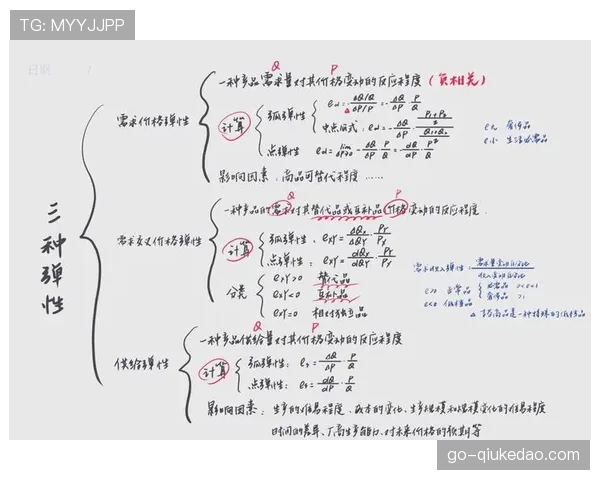 TG: MYYJJPP
日期 /
三种弹性
需求价格弹性
Q P
一种产品需求量对其价格变动的反应程度（负相关）
计算
弧弹性 ed=-ΔQ/Q / ΔP/P = -ΔQ/ΔP · P/Q
中点公式：ed=-ΔQ/ΔP ·
点弹性 ed= lim ΔP→0 -ΔQ/ΔP · P/Q = -dQ/dP · P/Q
e大 奢侈品
e小 生活必需品
影响因素：商品可替代程度 ……
需求交叉价格弹性
Q P
一种产品的需求对其替代品或互补品价格变动的反应程度.
计算
弧弹性：eXY= ΔQX/ΔPY · PY/
点弹性：eXY= · PY/
分类
eXY>0 替代品
eXY<0 互补品
eXY=0 相对独立品
需求收入弹性：
e>0 正常品
必需品 0<e<1
奢侈品 >1
e<0 低档品
△ 吉芬商品是一种特殊的低档品
供给弹性
Q P
一种产品供给量对其价格变动的反应程度
计算
弧弹性：es= ΔQ/ΔP · P/Q
点弹性：es= dQ/dP · P/Q
影响因素：生产的难易程度、成本的变化、生产规模和规模变化的难易程度
时间的差异、厂商生产能力、对未来价格的预期等
go-qiukedao.com